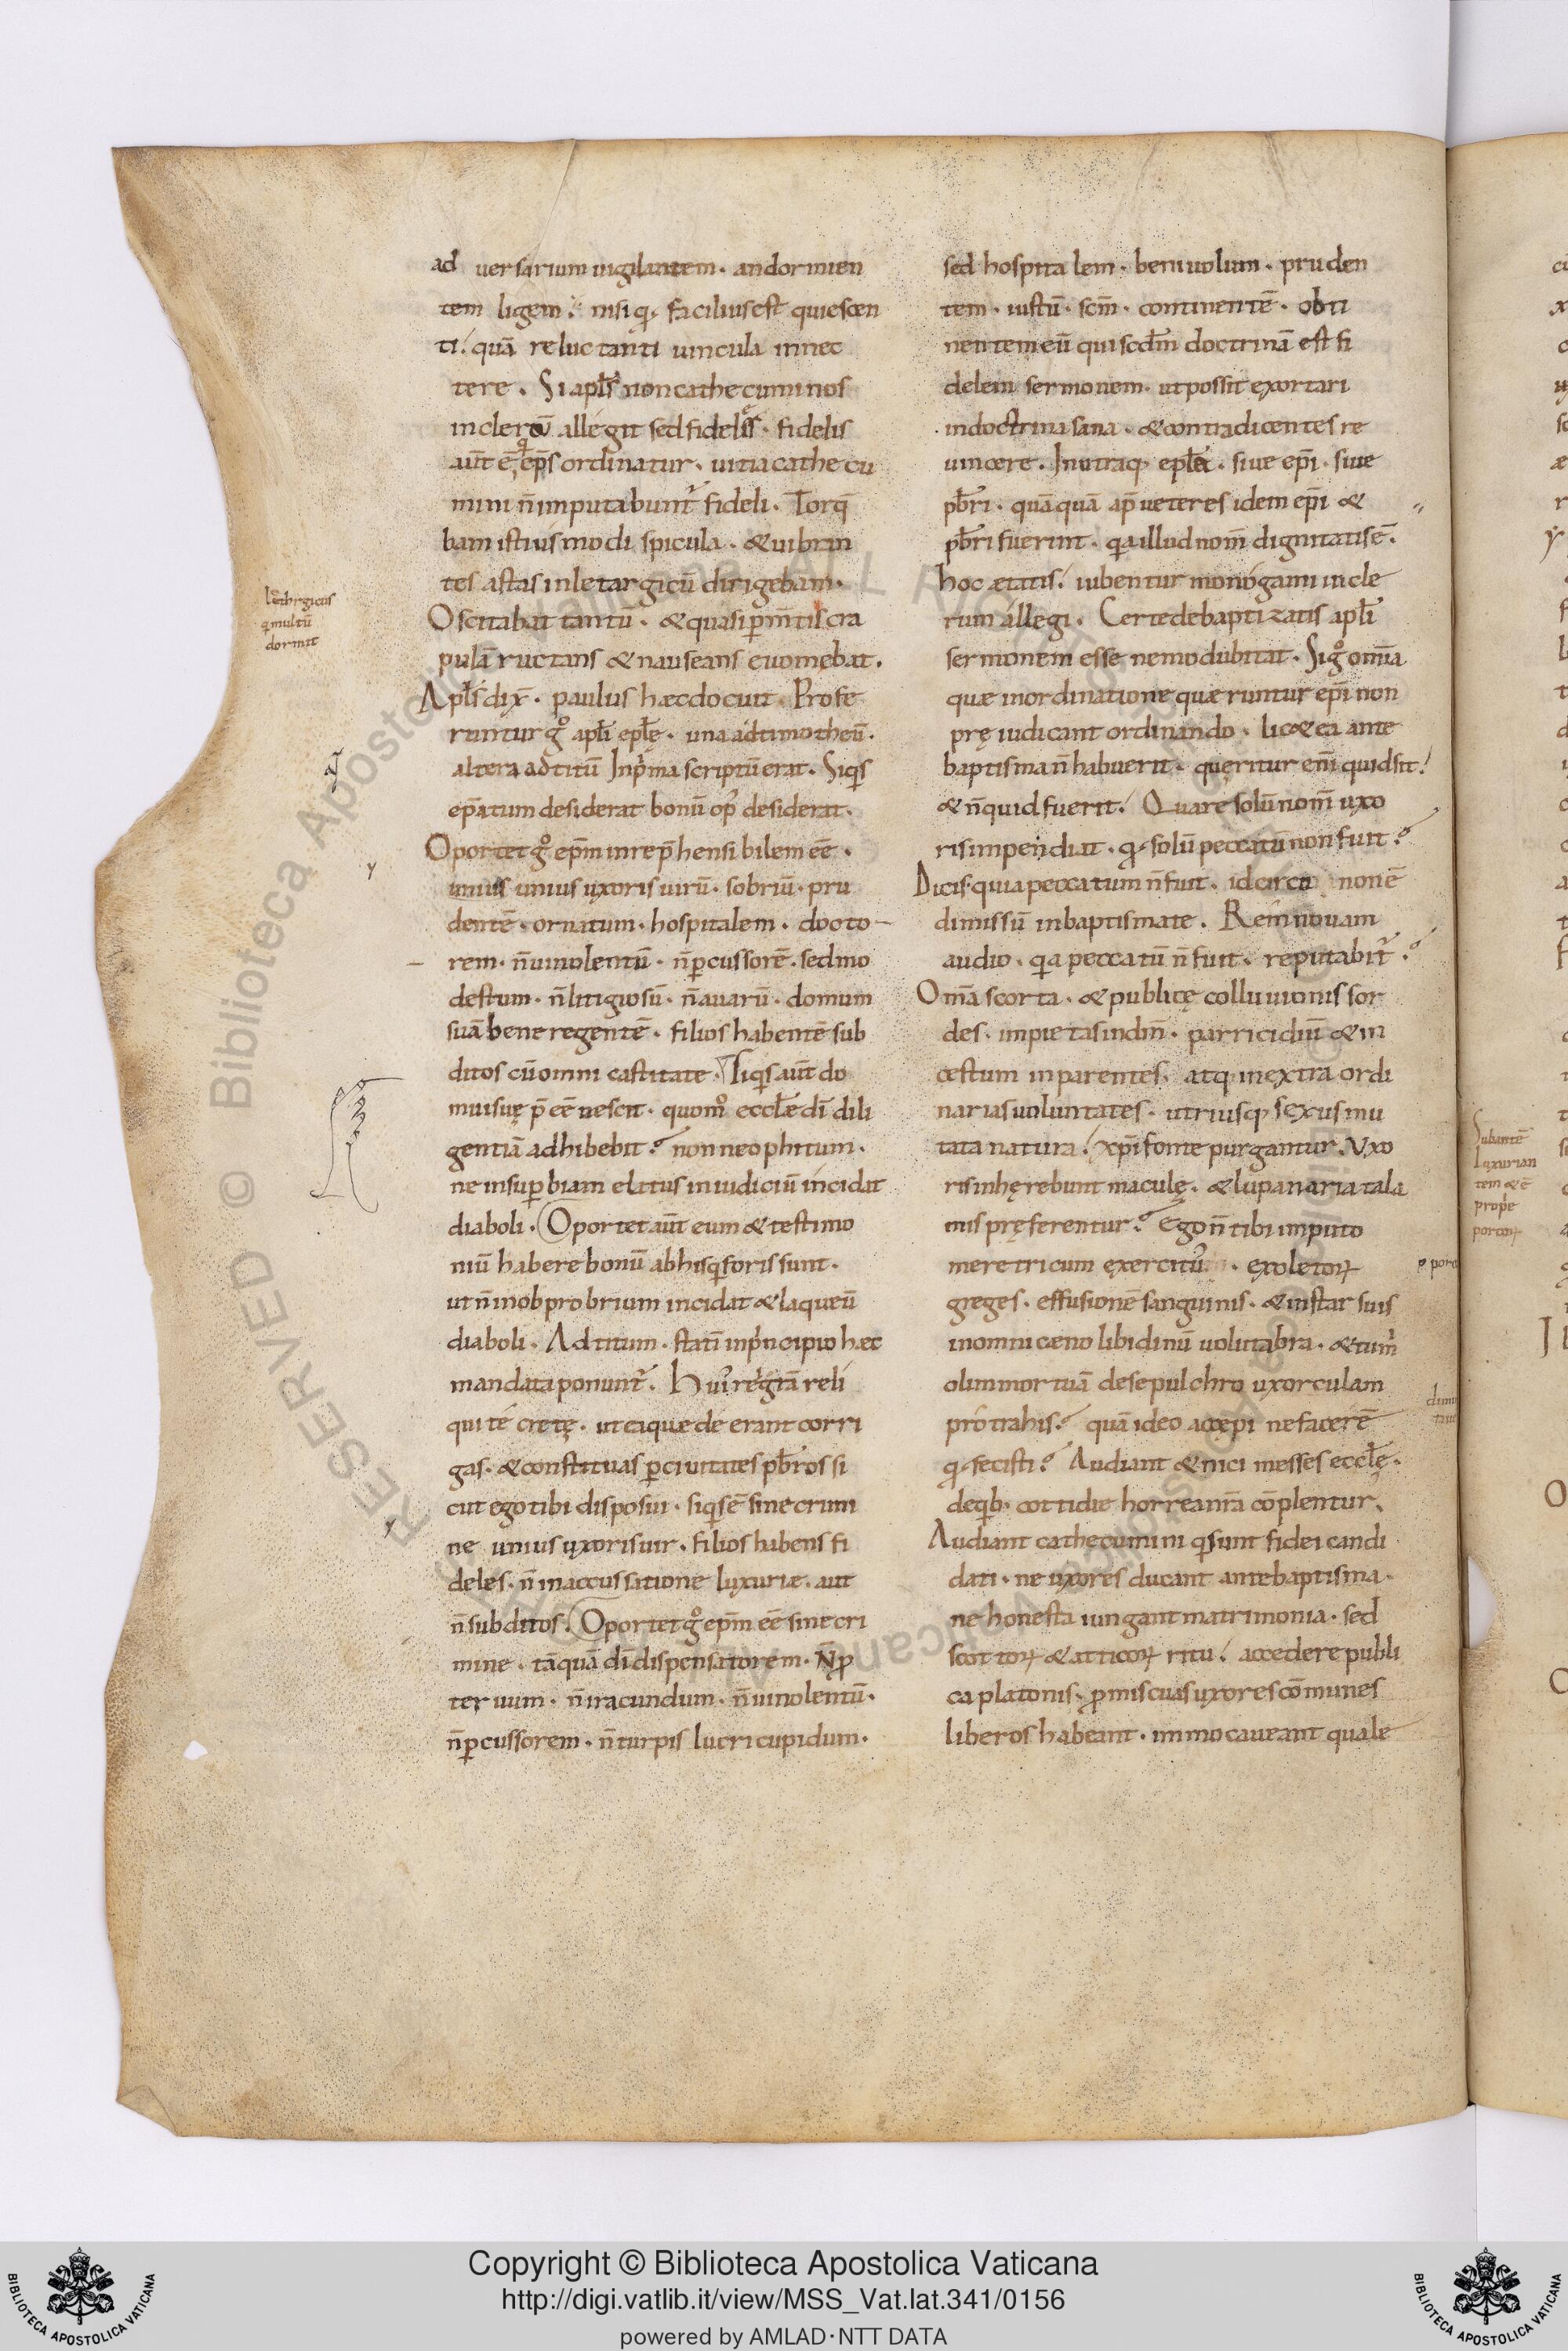 ad uersarium uigilantem · an dormien
tem ligem · nisi q · facilius est quiescen
ti · quā reluctanti uincula innec
tere · Si apls̄ non cathecuminos
in clerū allegit sed fidelis · fidelis
aūt ē ep̄s ordinatur · uitia cathecu
mini n̄ imputabunt᷑ fideli · Torq̄
bam istius modi spicula · & uibran
tes astas in letargicū dirigebam ·
Oscitabat tantū · & quasi p̄ m̄tis cra
pulā ructans & nauseans euomebat ·
Apls̄ dix̄ · paulus hæc docuit · Profe
runtur gͦ apl̄i epl̄ę · una ad timotheū ·
altera ad titū In p͛ma scriptū erat · Siqͥs
ep̄atum desiderat bonū op᷒ desiderat ·
Oportet gͦ ep̄m inrep̄hensibilem eē ·
unius uxoris uirū · sobriū · pru
dentē · ornatum · hospitalem · docto
rem · n̄ uinolentū · n̄ ꝑcussorē · sed mo
destum · n̄ litigiosū · n̄ auarū · domum
suā bene regentē · filios habentē sub
ditos cū omni castitate · Siqͥs aūt do
mui suę p̄eē nescit · quomͦ eccl̄æ dī dili
gentiā adhibebit? non neophitum ·
ne in suꝑbiam elatus in iudiciū incidat
diaboli · Oportet aūt eum & testimo
niū habere bonū ab his qͥ foris sunt ·
ut n̄ in obprobrium incidat & laqueū
diaboli · Ad titum · statī in p͛ncipio hæc
mandata ponunt᷑ · Hui᷒ rei gr̄a reli
qui te cretę · ut ea quæ deerant corri
gas · & constituas ꝑ ciuitates pb̄ros si
cut ego tibi disposui · siqͥs ē sine crimi
ne unius uxoris uir · filios habens fi
deles · n̄ in accussatione luxuriæ · aut
n̄ subditos · Oportet gͦ ep̄m eē sine cri
mine · tāquā dī dispensatorem · N̄ ꝓ
teruum · n̄ iracundum · n̄ uinolentū ·
n̄ ꝑcussorem · n̄ turpis lucri cupidum ·
sed hospitalem · beniuolum · pruden
tem · iustū · sc̄m · continentē · obti
nentem eū qui scd̄m doctrinā est fi
delem sermonem · ut possit exortari
in doctrina sana · & contradicentes re
uincere · In utraq; epl̄a · siue ep̄i · siue
pb̄ri · quāquā ap̄ ueteres idem ep̄i &
pb̄ri fuerint · qͥa illud nom̄ dignitatis ē ·
hoc ætatis · iubentur monogami in cle
rum allegi · Certe de baptizatis apl̄i
sermonem esse nemo dubitat · Si gͦ omīa
quæ in ordinatione quæruntur ep̄i non
pręiudicant ordinando · lic& ea ante
baptisma n̄ habuerit · queritur enī quid sit ·
& n̄ quid fuerit · Quare solū nom̄ uxo
ris impendiat · q · solū peccatū non fuit?
Dicis · quia peccatum n̄ fuit · idcirco non ē
dimissū in baptismate · Rem nouam
audio · qͥa peccatū n̄ fuit · reputabit᷑?
Om̄a scorta · & publicę colluuionis sor
des · impietas in dm̄ · parricidiū & in
cestum in parentes · atq; in extra ordi
narias uoluntates · utriusq; sexus mu
tata natura · xp̄i fonte purgantur · Uxo
ris inhęrebunt maculę · & lupanaria tala
mis pręferentur? Ego n̄ tibi imputo
meretricum exercitū · exoletoꝝ
greges · effusionē sanguinis · & instar suis
in omni cæno libidinū uolutabra · & tu m͛
olim mortuā de sepulchro uxorculam
protrahis? quā ideo accepi ne facerē
q · fecisti? Audiant & nici messes eccl̄ę ·
de qͥb; cottidie horrea nr̄a cōplentur ·
Audiant cathecumini qͥ sunt fidei candi
dati · ne uxores ducant ante baptisma ·
ne honesta iungant matrimonia · sed
scottoꝝ & atticoꝝ ritu · accedere publi
ca platonis · ꝓmiscuas uxores cōmunes
liberos habeant · immo caueant quale
qͥ multū
dormit
Subantē
luxurian
tem
porcoꝝ
Copyright © Biblioteca Apostolica Vaticana
http://digi.vatlib.it/view/MSS_Vat.lat.341/0156
powered by AMLAD·NTT DATA
BIBLIOTECA APOSTOLICA VATICANA
BIBLIOTECA APOSTOLICA VATICANA